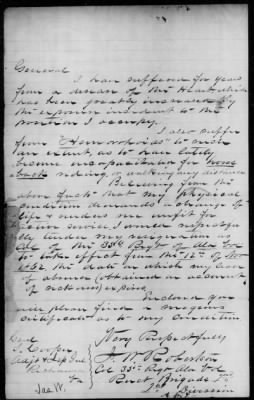 General
I have suffered for years
from a disease of the Heart which
has been greatly increased by
the exposure incident to the
position I occupy.
I also suffer
from Hemorrhoids to such
an extent as to have entirely
become incapacitated for horse
back riding, or walking any distance
Believing from the
above facts that my physical
condition demands a change of
life & renders me unfit for
active service I would respectfully
tender my resignation as
Col of the 35th Regt of Ala Vol
to take effect from the 12th of Nov
1862 the date on which my leave
of absence (obtained on account
of sickness) expires.
Enclosed you
will please find a surgeons
certificate as to my condition
Very Respectfully
J. W. Robertson
Col 35th Regt Ala Vol
Genl
S. Cooper
Adjt & Insp Genl
Richmond
Va
Jas W.
Division